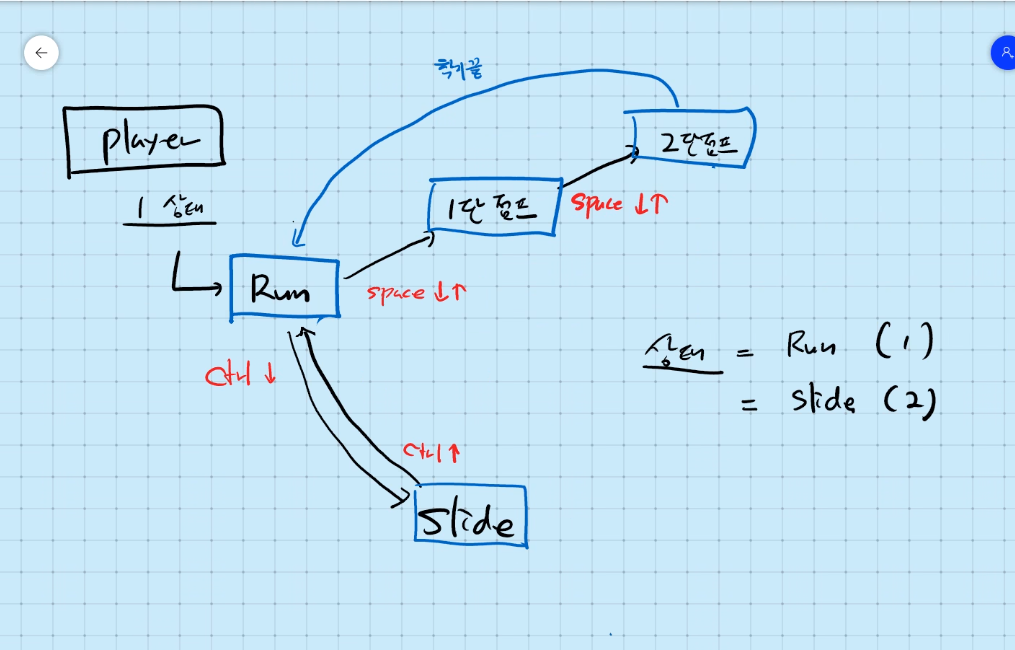 player
1 상태
Run
space ↓↑
1단점프
space ↓↑
2단점프
ctrl ↓
ctrl ↑
Slide
상태 = Run (1)
= Slide (2)